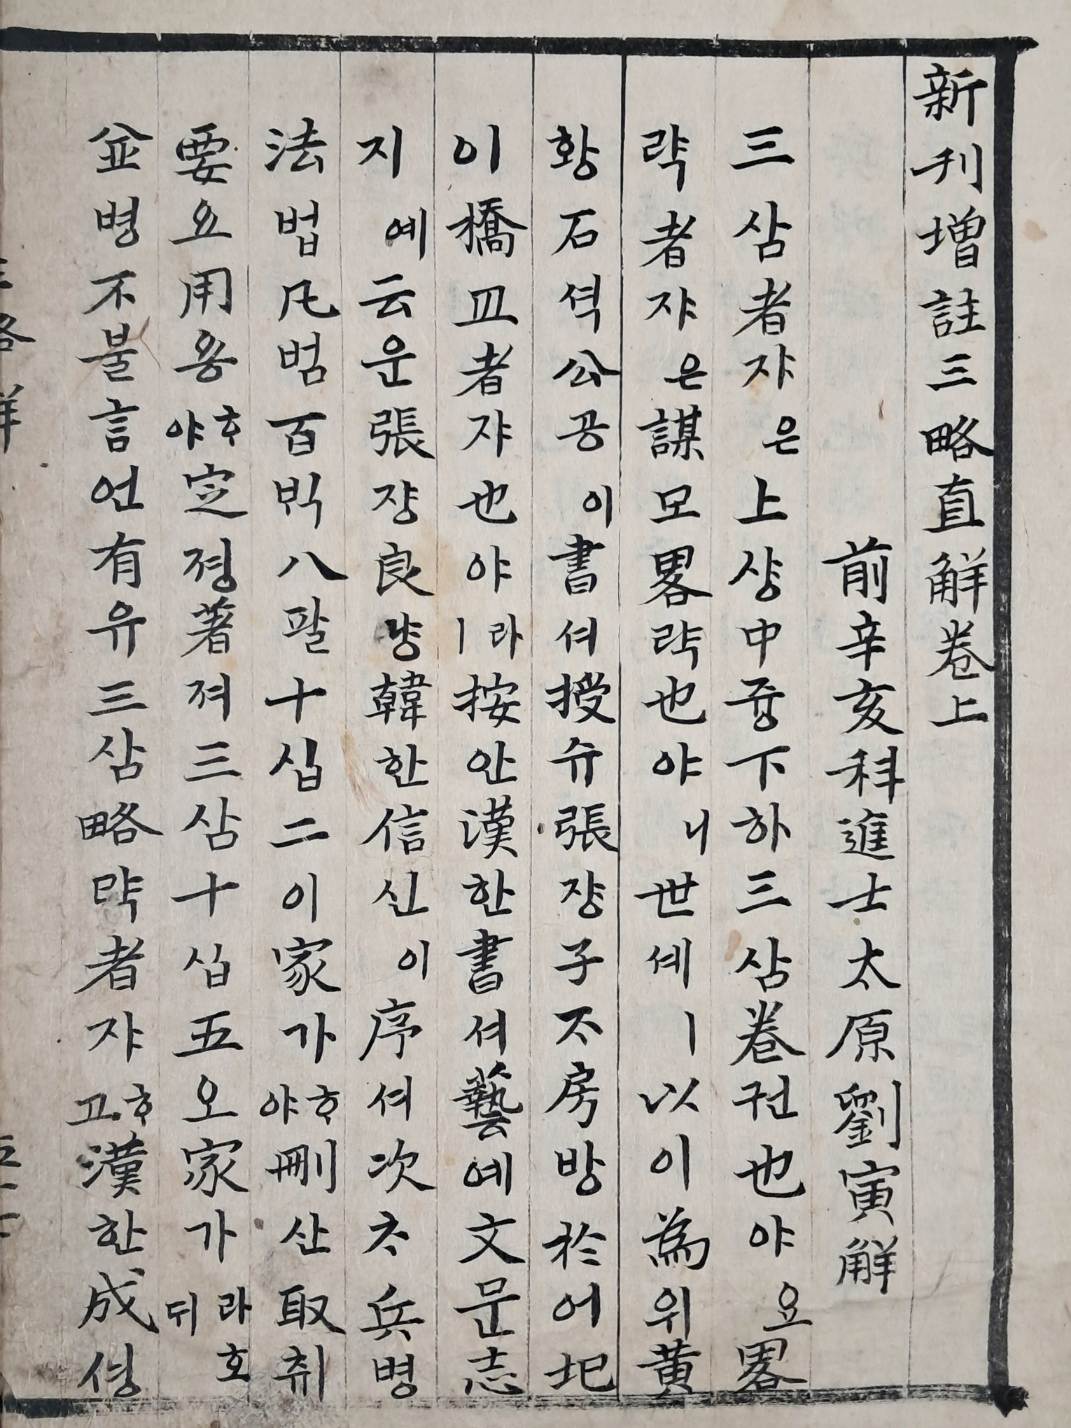 新刊增註三略直解卷上
前辛亥科進士太原劉寅解
三삼者쟈은上샹中듕下하三삼卷권也야요畧
략者쟈은謀모畧략也야니世셰ㅣ以이爲위黃
황石셕公공이書셔授슈張쟝子ᄌᆞ房방於어圯
이橋교者쟈也야ㅣ라按안漢한書셔藝예文문志
지예云운張쟝良냥韓한信신이序셔次ᄎᆞ兵병
法법凡범百ᄇᆡᆨ八팔十십二이家가ᄒᆞ야刪산取취
要요用용ᄒᆞ야定졍著져三삼十십五오家가라호ᄃᆡ
並병不불言언有유三삼略략者쟈ᄒᆞ고漢한成셩